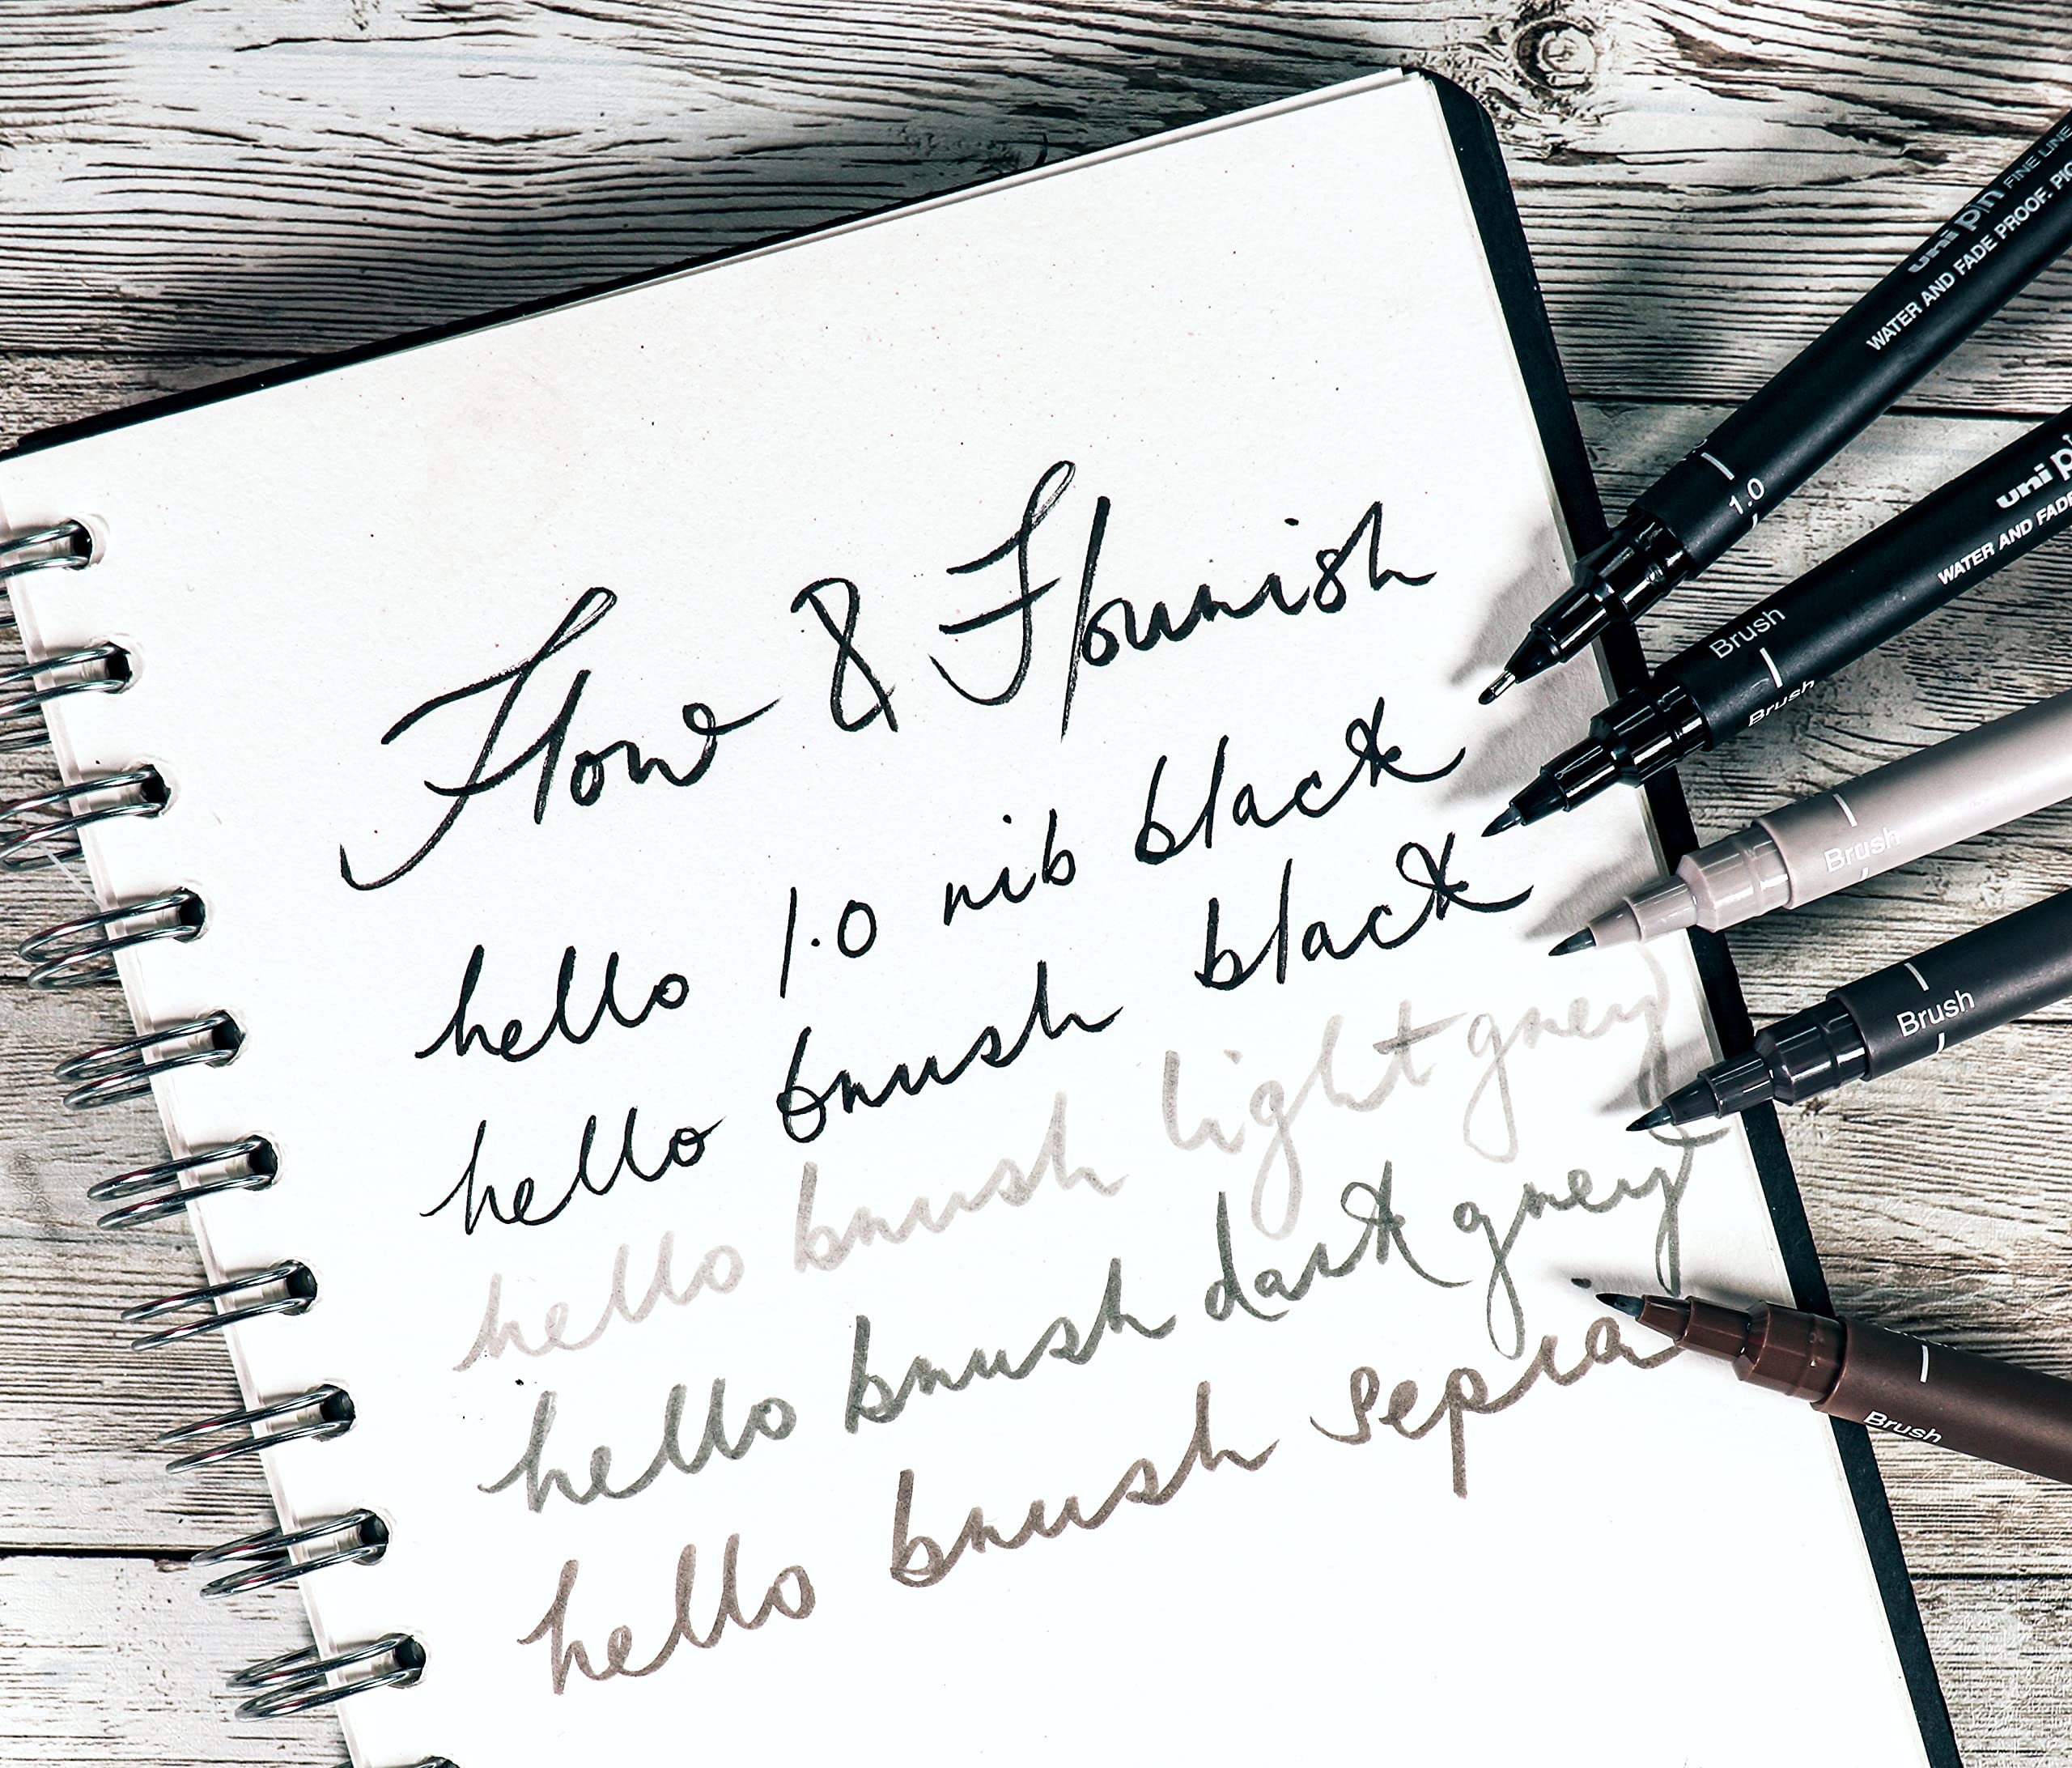 Flow & Flourish
hello 1.0 nib black
hello brush black
hello brush light grey
hello brush dark grey
hello brush sepia
uni pin FINE LINE
WATER AND FADE PROOF.
1.0
uni
WATER AND
Brush
Brush
Brush
Brush
Brush